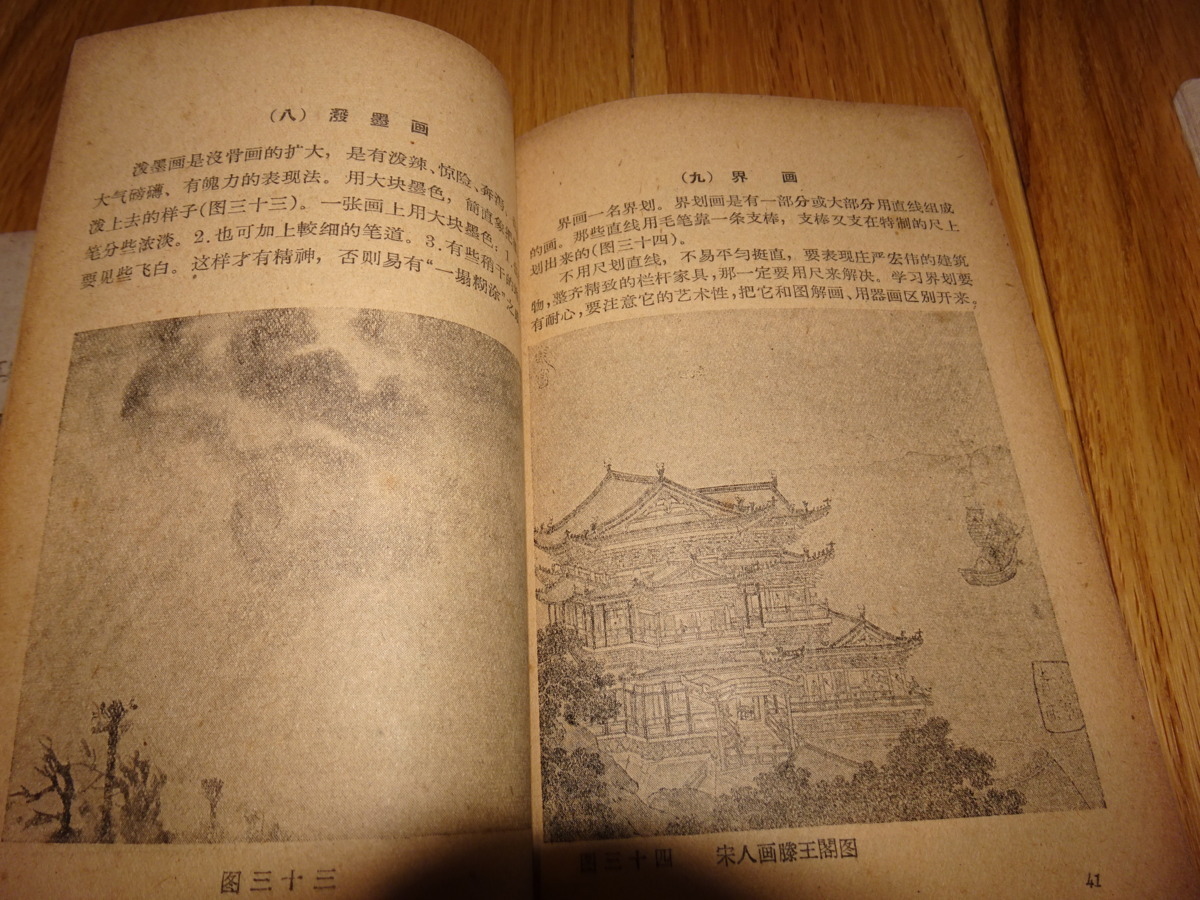 （八） 潑 墨 画
泼墨画是沒骨画的扩大，是有泼辣、惊险、奔
大气磅礴、有魄力的表现法。用大块墨色，簡直象
泼上去的样子（图三十三）。一张画上用大块墨色：1.
笔分些浓淡。2.也可加上較细的笔道。3.有些稍干的
要见些飞白。这样才有精神，否则易有“一塌糊涂”之
图三十三
（九） 界 画
界画一名界划。界划画是有一部分或大部分用直线组成
的画。那些直线用毛笔靠一条支棒，支棒又支在特制的尺上
划出来的（图三十四）。
不用尺划直线，不易平匀挺直，要表现庄严宏伟的建筑
物，整齐精致的栏杆家具，那一定要用尺来解决。学习界划要
有耐心，要注意它的艺术性，把它和图解画、用器画区别开来。
图三十四 宋人画滕王閣图
41